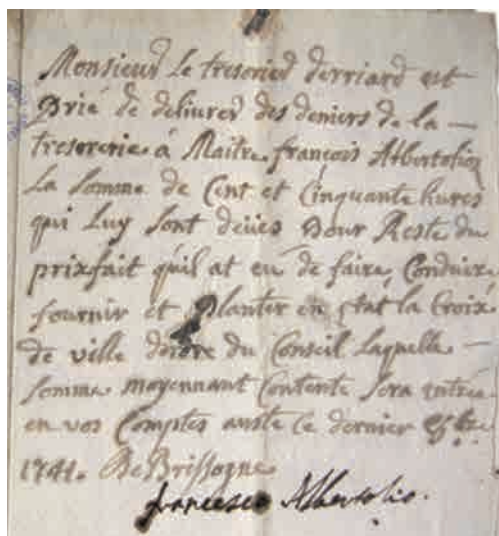 Monsieur Le tresorier derriard est
Prié de delivrer des deniers de la —
tresorerie à Maitre françois Albertolio
La somme de Cent et Cinquante livres
qui Luy sont deües Pour Reste du
prixfait qu'il at eu de faire, Conduire,
fournir et Planter en état la Croix
de ville d'ordre du Conseil Laquelle —
somme moyennant Contente sera entrée
en vos Comptes aoste Ce dernier
1741. De Brissogne
francesco Albertolio.